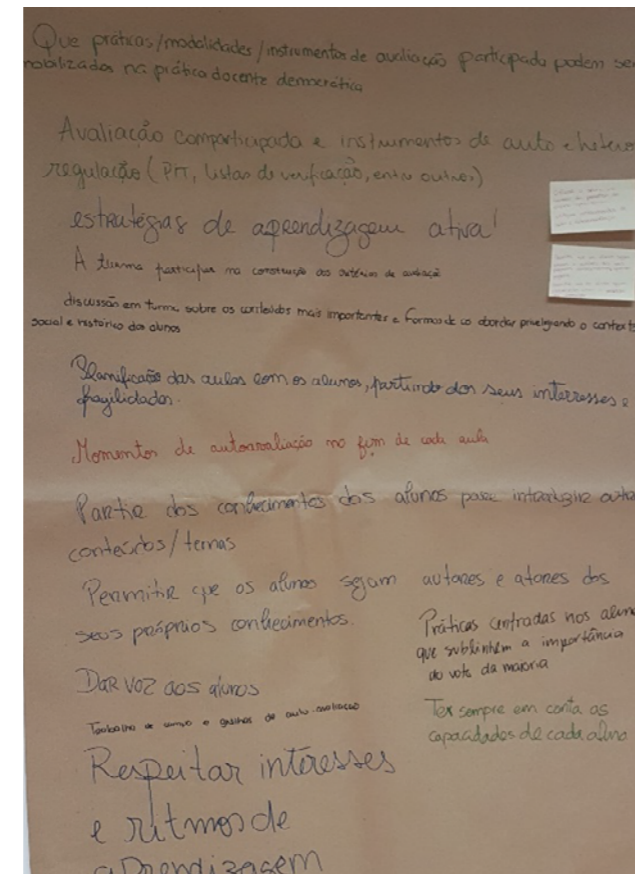 Que práticas/modalidades/instrumentos de avaliação participada podem se
mobilizados na prática docente democrática
Avaliação comparticipada e instrumentos de auto e hetero
regulação (PIT, listas de verificação, entre outros)
estratégias de aprendizagem ativa!
A turma participar na construção dos critérios de avaliação
discussão em turma sobre os conteúdos mais importantes e formas de os abordar privelegiando o context
social e histórico dos alunos
Planificação das aulas com os alunos, partindo dos seus interesses e
fragilidades.
Momentos de autoavaliação no fim de cada aula
Partir dos conhecimentos dos alunos para introduzir outr
conteúdos/temas
Permitir que os alunos sejam autores e atores dos
seus próprios conhecimentos.
Práticas centradas nos alun
que sublinhem a importância
do voto da maioria
Dar voz aos alunos
Trabalho de campo e grelhas de auto-avaliação
Ter sempre em conta as
capacidades de cada aluno
Respeitar interesses
e ritmos de
aprendizagem